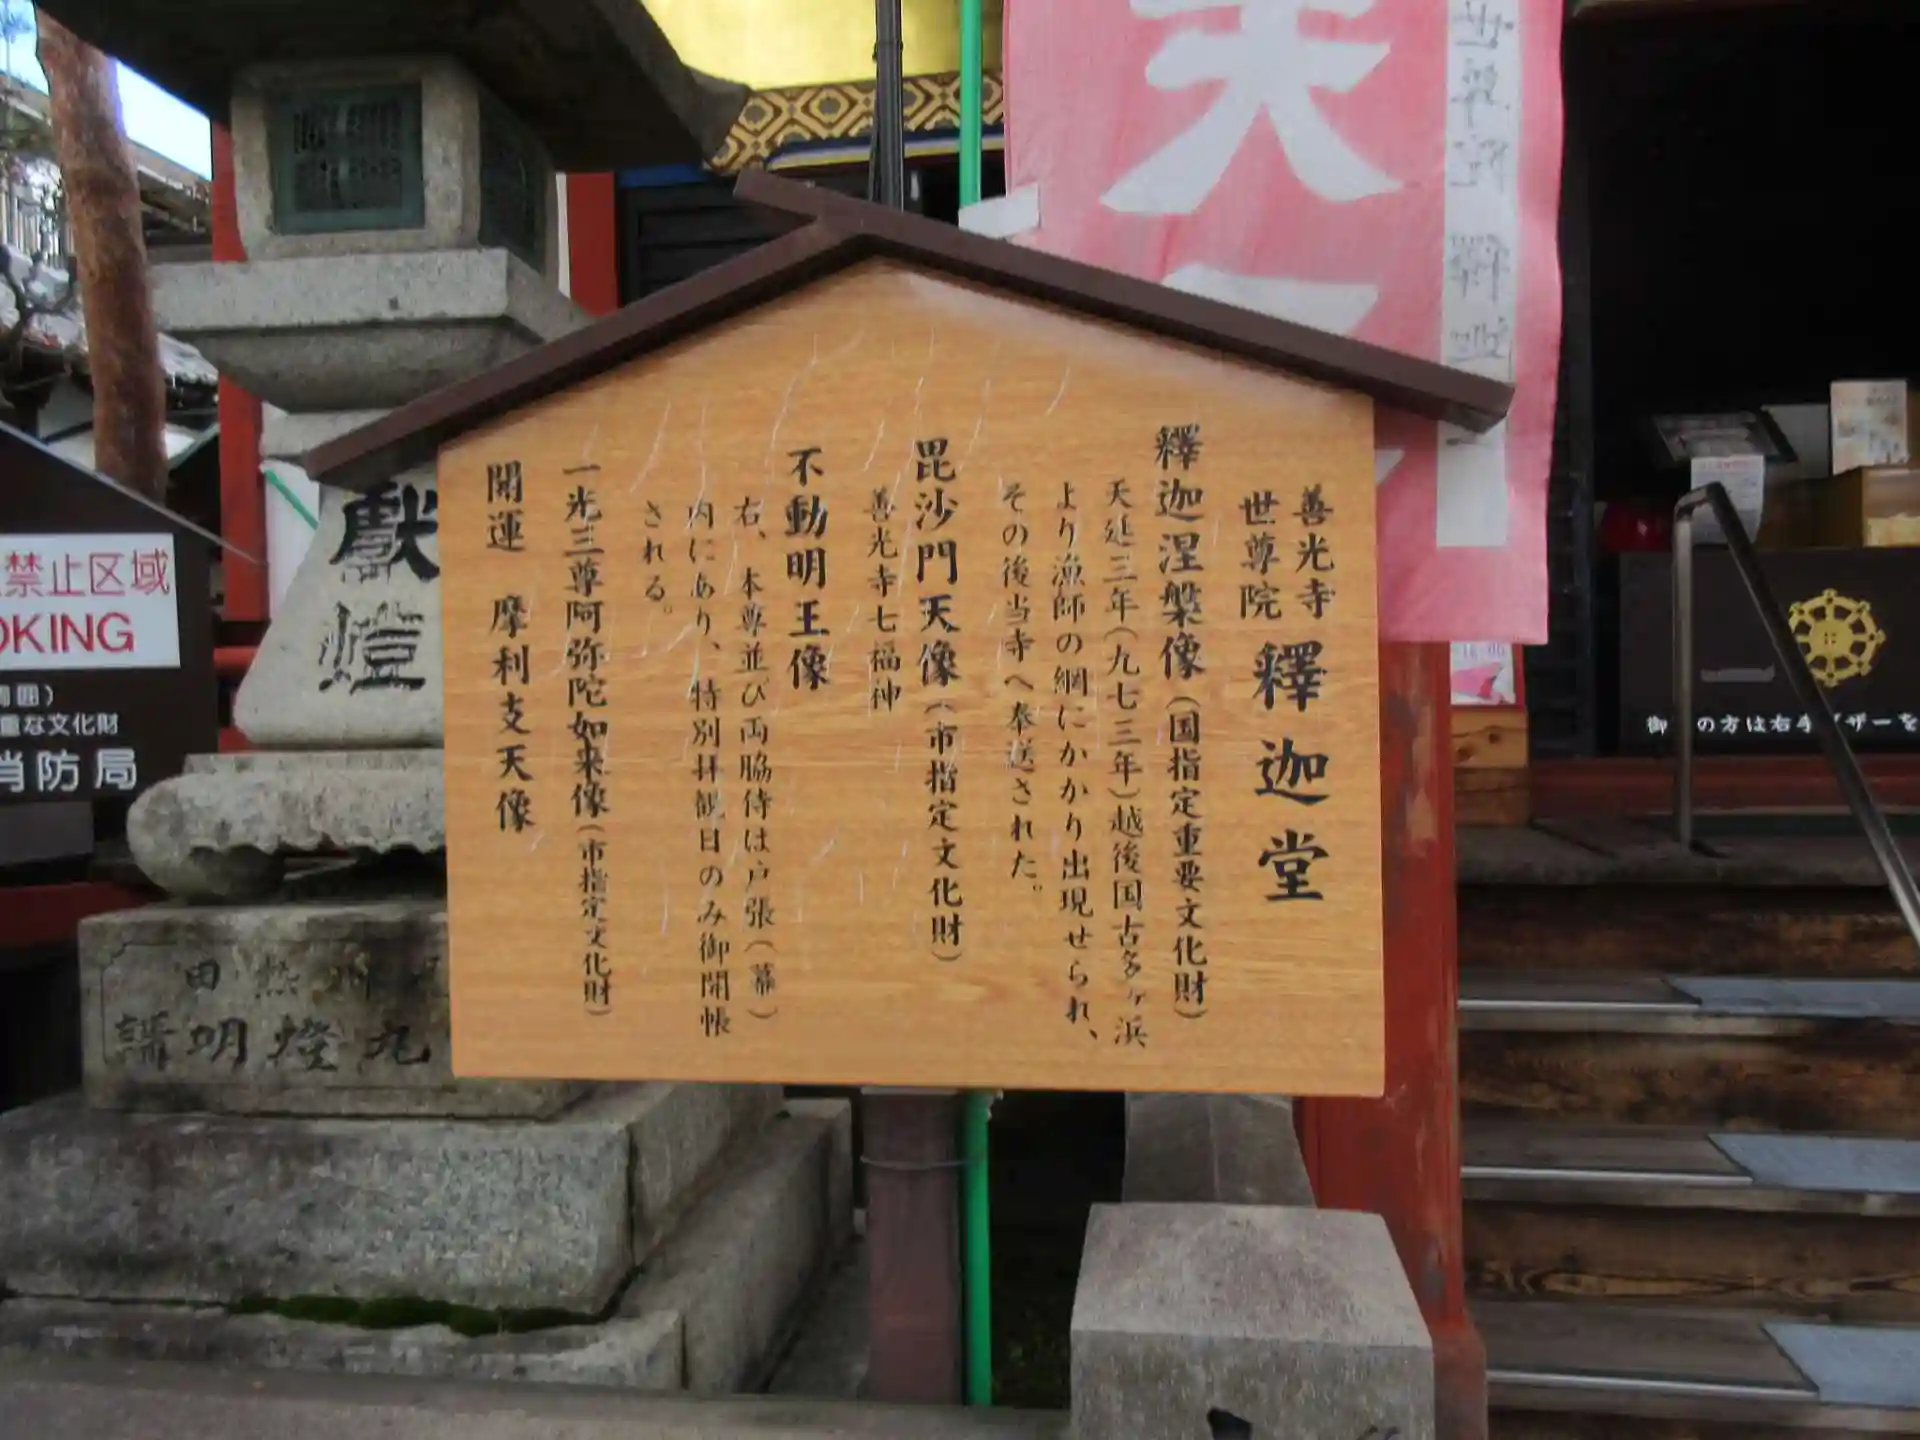 善光寺
世尊院
釋迦堂
釋迦涅槃像(国指定重要文化財)
天延三年(九七三年)越後国古多ヶ浜
より漁師の網にかかり出現せられ、
その後当寺へ奉送された。
毘沙門天像(市指定文化財)
善光寺七福神
不動明王像
右、本尊並び両脇侍は戸張(幕)
内にあり、特別拝観日のみ御開帳
される。
一光三尊阿弥陀如来像(市指定文化財)
開運 摩利支天像
献燈
田熱
講明燈丸
禁止区域
OKING
周囲)
重な文化財
消防局
天
御
の方は右手
ザーを